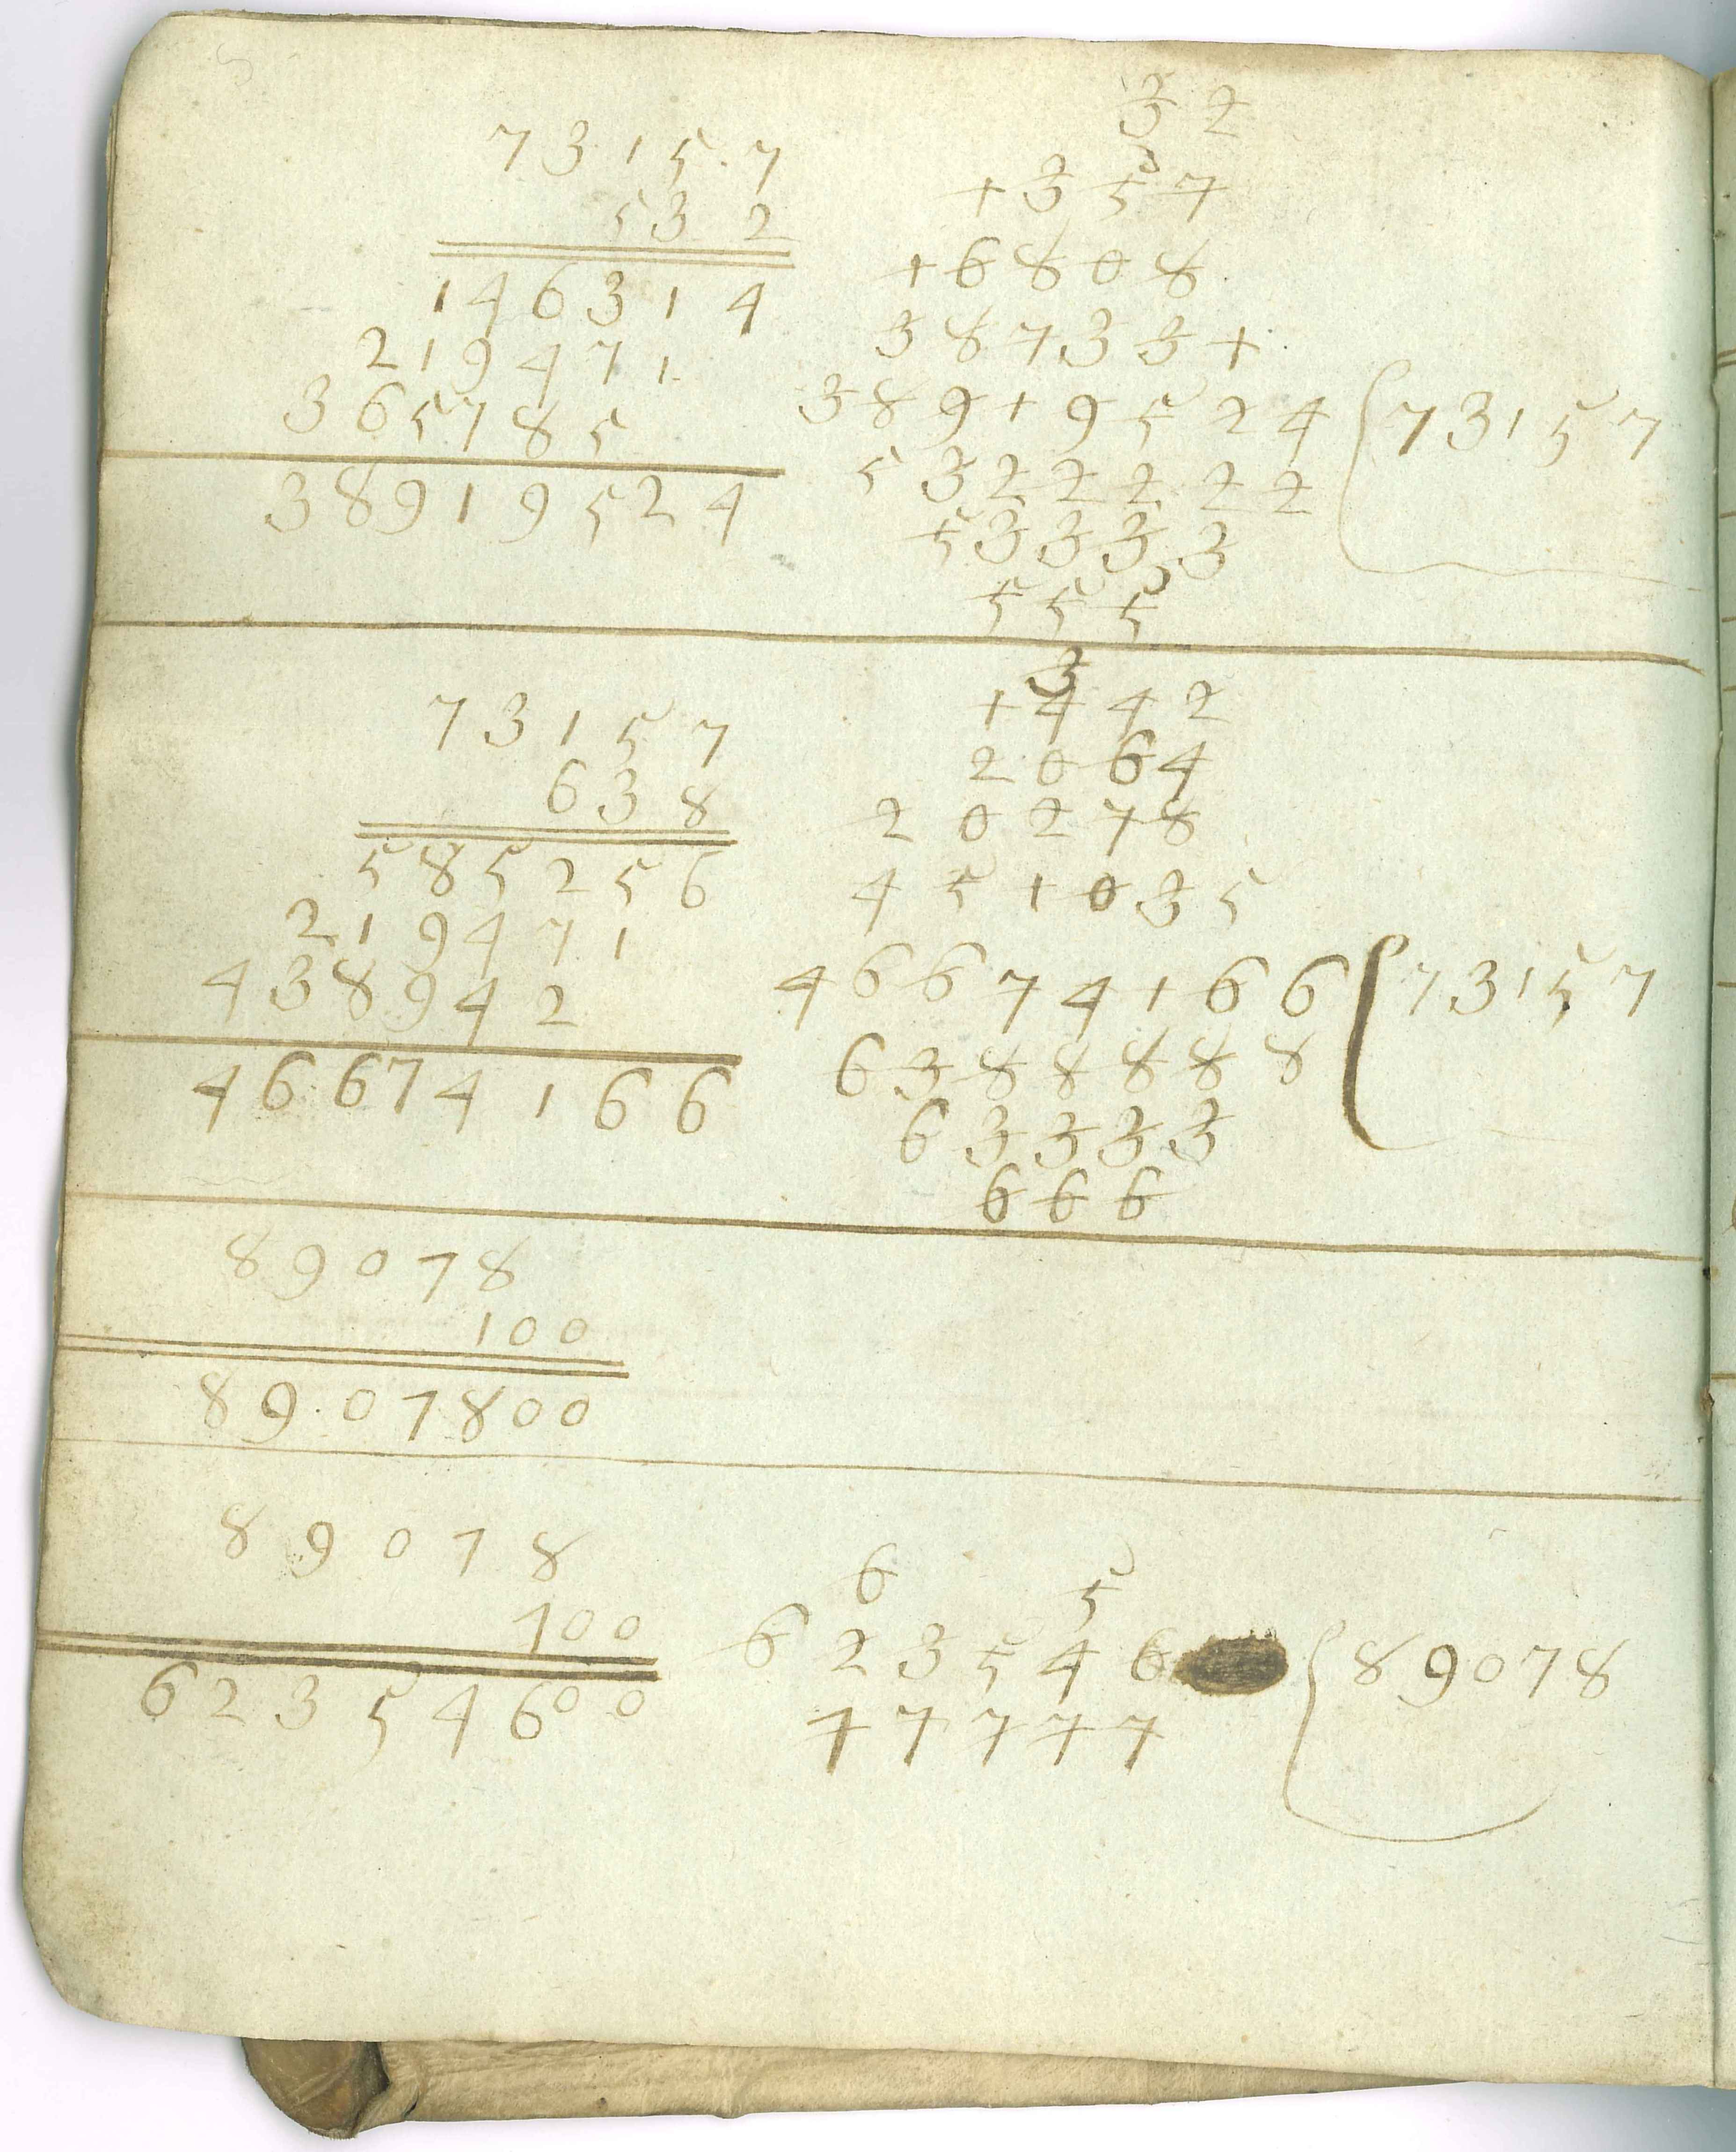 73157
532
146314
219471
365785
38919524
32
+357
+6808
387331
38919524 { 73157
5322222
53333
555
73157
638
585256
219471
438942
46674166
3
1442
2064
20278
451035
46674166 { 73157
6388888
63333
666
89078
100
8907800
89078
700
62354600
6 5
623546 { 89078
77777